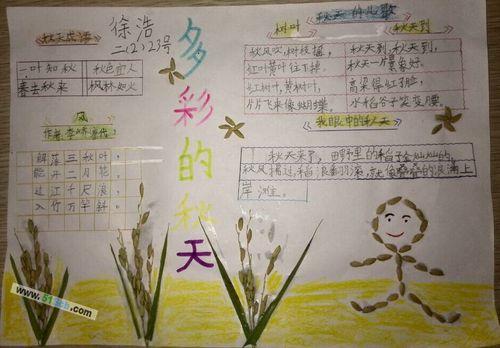 秋天成语
徐浩
二(2)23号
一叶知秋
秋色宜人
春去秋来
枫林如火
风
作者:李峤 唐代
解落三秋叶,
能开二月花。
过江千尺浪,
入竹万竿斜。
多彩的秋天
秋天的儿歌
树叶
秋天到
秋风吹,树枝摇,
红叶黄叶往下掉。
红树叶,黄树叶,
片片飞来像蝴蝶。
秋天到,秋天到,
秋天一片景象好。
高梁得红了脸,
水稻谷子笑弯腰。
我眼中的秋天
秋天来了,田野里的稻子金灿灿的,
秋风拂过,稻浪翻滚,就像叠叠的浪涌上
岸